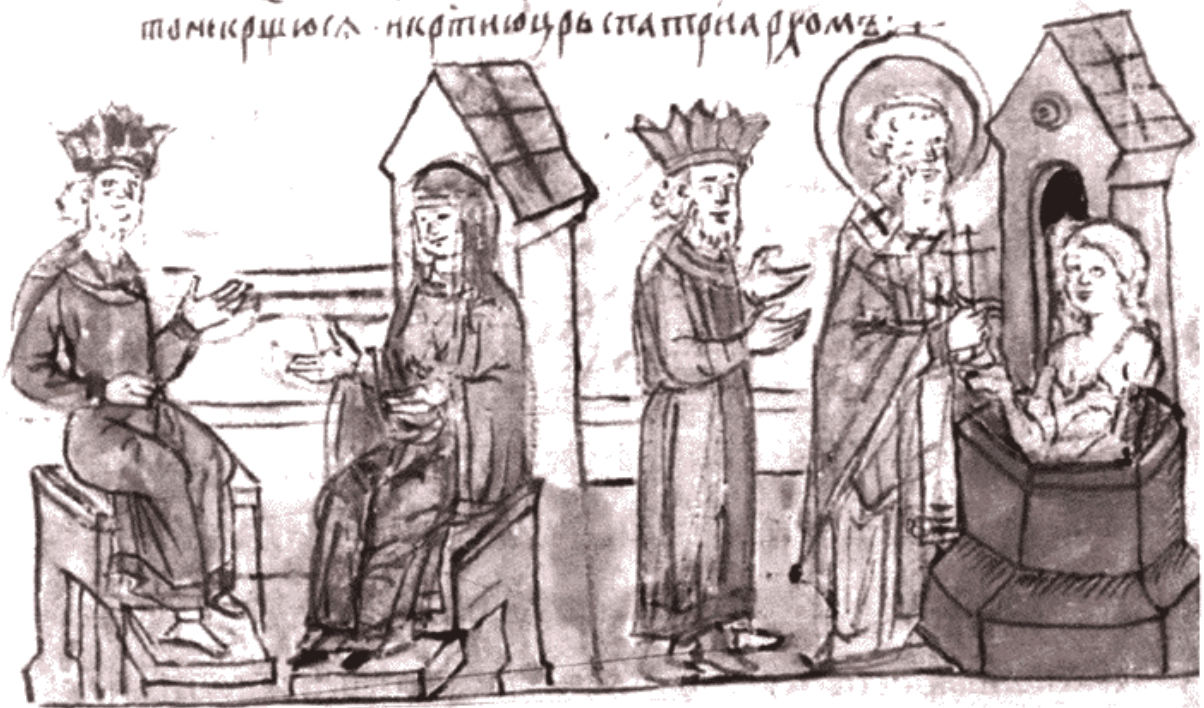 то некрщюся · икртиюцрьспатриархомъ:·